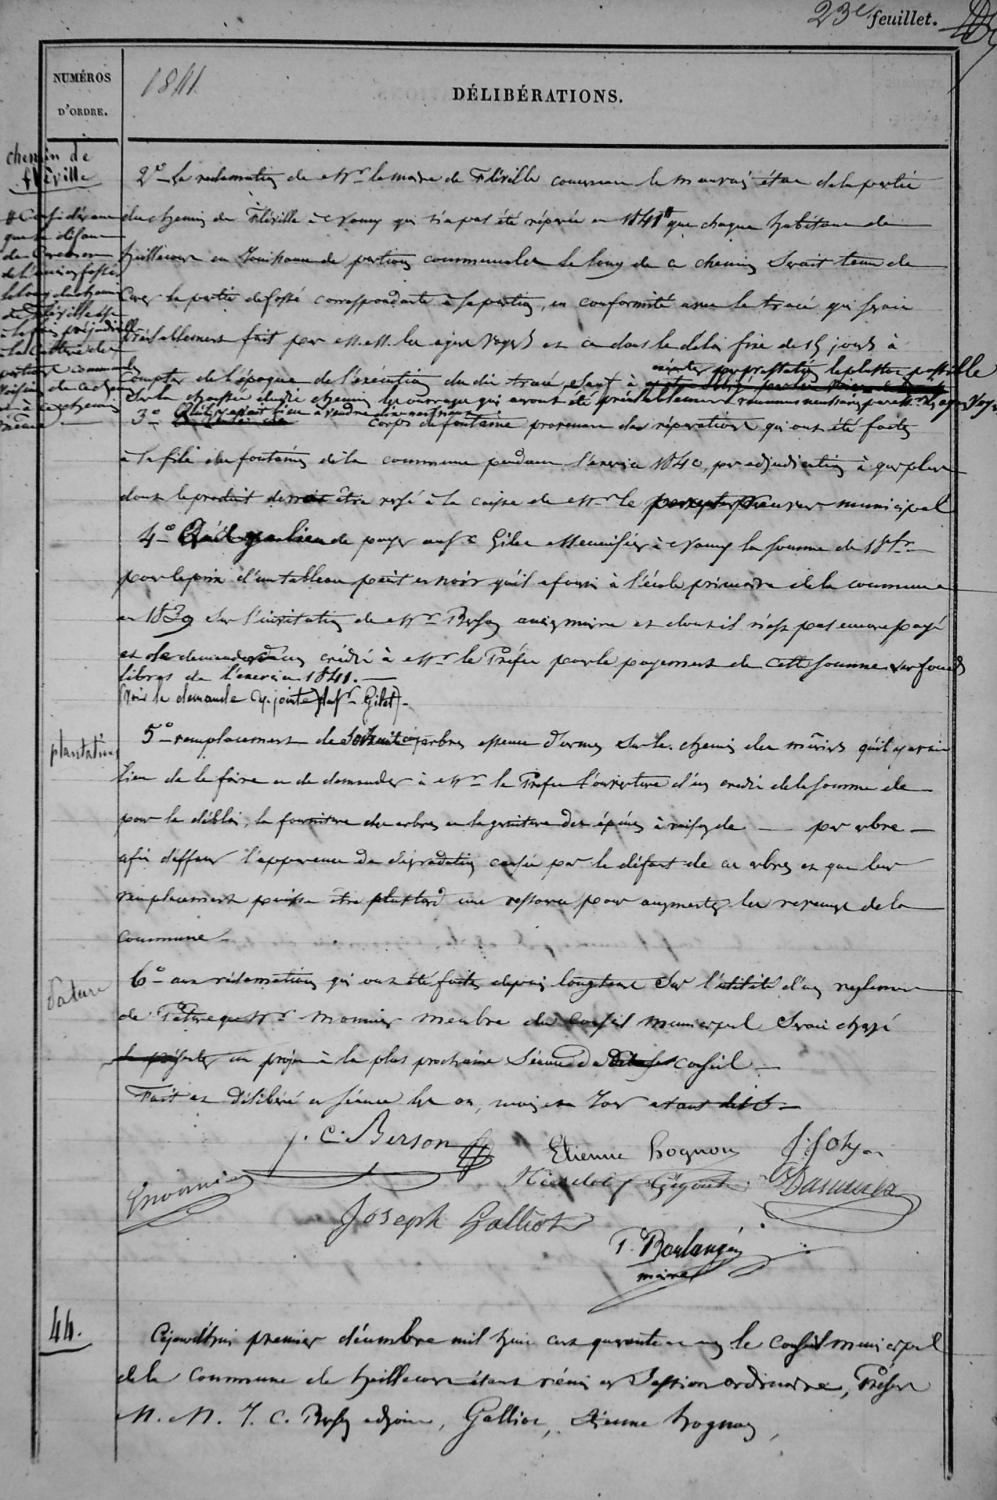 23e feuillet.
NUMÉROS
D'ORDRE.
1841
DÉLIBÉRATIONS.
chemin de
fléville
2° La reclamation de Mr. le maire de Fléville concernant le mauvais état de la partie
du chemin de Fléville à Nancy qui n'a pas été réparée en 1841 # que chaque habitant de
heillecourt en Jouissance de portions communales le long de ce chemin Serait tenu de
# Considérant
que le défaut
de
de l'ancien fossé
le long du chemin
de Fléville est
préjudi
à la culture des
portions communales
et à ce chemin
même
Curer la partie de fossé correspondante à sa portion, en conformité avec le tracé qui serait
préalablement fait par MM. les agens voyers et ce dans le délai fixé de 15 jours à
Compter de l'époque de l'exécution du dit tracé, sauf à exécuter par prestation le plutôt possible
Sur la chaussée du dit chemin les ouvrages qui auront été préalablement reconnus nécessaires par MM. les agens Voyers
3° corps de fontaine provenant des réparations qui ont été faites
à la file des fontaines de la commune pendant l'exercice 1840, par adjudication à qui plus
dont le produit devrait être versé à la caisse de Mr. le percepteur receveur municipal
4° Qu'il y a lieu de payer au Sr. Gilet Menuisier à Nancy la somme de 18 fr.
pour le prix d'un tableau peint en noir qu'il a fourni à l'école primaire de la commune
en 1839 sur l'invitation de Mr. Berson ancien maire et dont il n'est pas encore payé
et de demander un crédit à Mr. le Préfet pour le payement de cette Somme sur fonds
libres de l'exercice 1841.
(Voir la demande cy jointe du Sr. Gilet).
plantations
5° remplacement de arbres essence d'ormes sur le chemin des mûriers qu'il y avait
lieu de le faire et de demander à Mr. le Préfet l'ouverture d'un crédit de la somme de
pour le déblai, la fourniture des arbres et la garniture des épines à raison de — par arbre —
afin d'effacer l'apparence de dégradation causée par le défaut de ces arbres et que leur
remplacement puisse être plustard une ressource pour augmenter les revenus de la
commune.
Pature
6° aux réclamations qui ont été faites depuis longtems Sur l'utilité d'un reglement
de Pature que Mr. Monnier membre du Conseil municipal Serait chargé
de présenter un projet à la plus prochaine Séance du dit Conseil.
Fait et Délibéré en séance les an, mois et Jour avant dits.
J. C. Berson
Etienne hognon
J. Joly
Nicolas Gigout
Joseph Galliot
P. Boulanger
maire
44.
Cejourd'hui premier décembre mil huit cent quarante et un, le Conseil municipal
de la Commune de heillecourt étant réuni en Session ordinaire, Présens
M. M. J. C. Berson adjoint, Galliot, Etienne hognon,